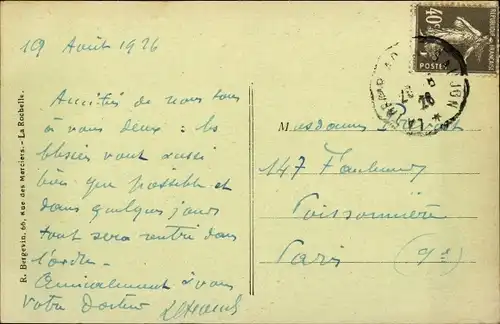 19 Août 1926
Amitiés de nous tous
à vous deux : les
blessés vont aussi
bien que possible et
dans quelques jours
tout sera rentré dans
l'ordre.
Amicalement à vous
Votre Docteur
R. Bergevin, 66, Rue des Merciers. - La Rochelle.
M esdames
147 Faubourg
Poissonnière
Paris (9e)
40c
POSTES